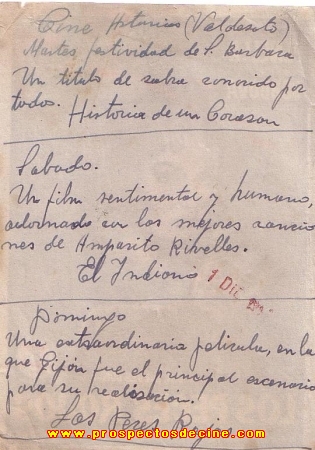 Cine Asturias (Valdesoto)
Martes festividad de S. Barbara
Un titulo de sobra conocido por
todos.
Historia de un Corazon
Sabado.
Un film sentimental y humano,
adornado con las mejores cancio
nes de Amparito Rivelles.
El Indiano
1 DIC
Domingo
Una extraordinaria pelicula, en la
que Gijón fue el principal escenario
para su realisación.
Los Peces Rojos
www.prospectosdecine.com